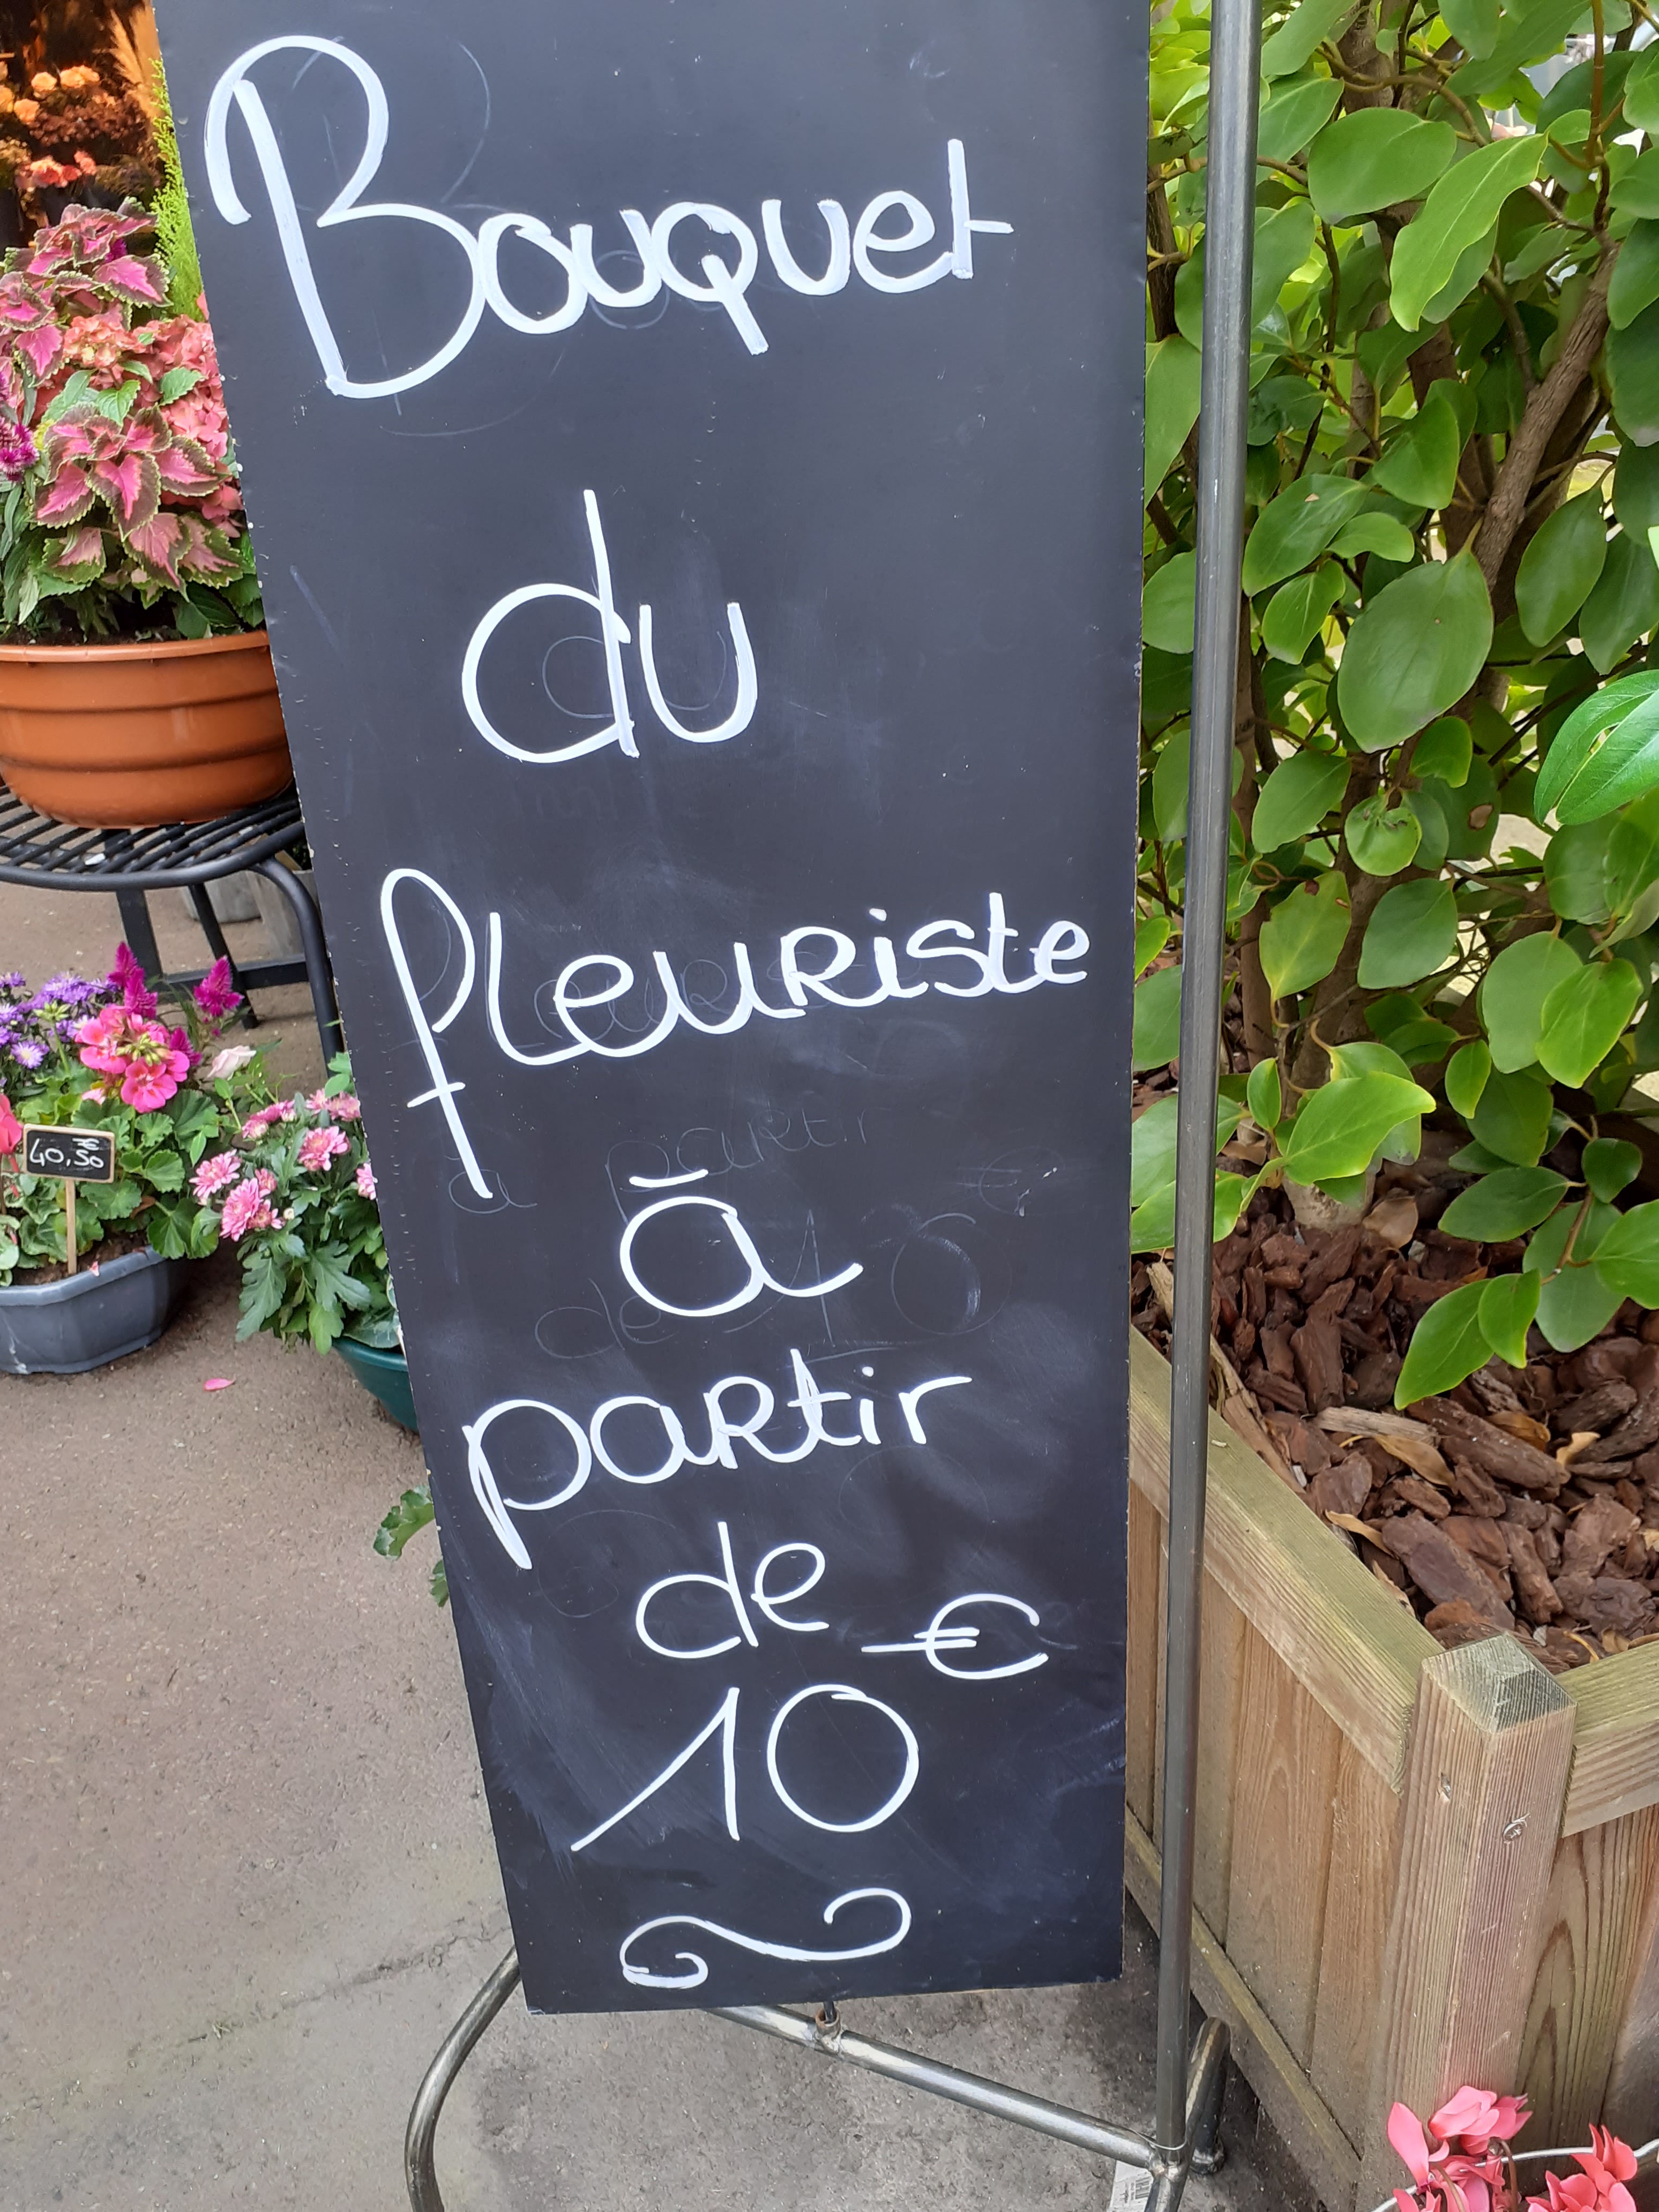 Bouquet
du
fleuriste
à
partir
de €
10
40,50 €